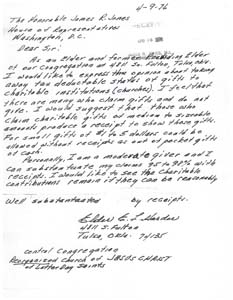 4-9-76
The Honorable James R. Jones
House of Representatives
Washington, D.C.
Dear Sir:
As an Elder and former Presiding Elder
of our Congregation at 4811 So. Fulton, Tulsa, Okla.
I would like to express the opinion about taking
away tax deductable status of gifts to
charitable institutions (churches). I feel that
there are many who claim gifts and do not
give. I would suggest that those who
claim charitable gifts of medium to sizeable
amounts produce receipts to show those gifts.
For small gifts of $1 to 5 dollars could be
allowed without receipts as out of pocket gifts
of cash.
Personally, I am a moderate giver and I
can substantiate my claims 95 to 98% with
receipts. I would like to see the Charitable
contributions remain if they can be reasonably
well substantiated by receipts.
Elder E. L.
4811 S. Fulton
Tulsa Okla. 74135
Central Congregation
Reorganized Church of JESUS CHRIST
of Latter Day Saints